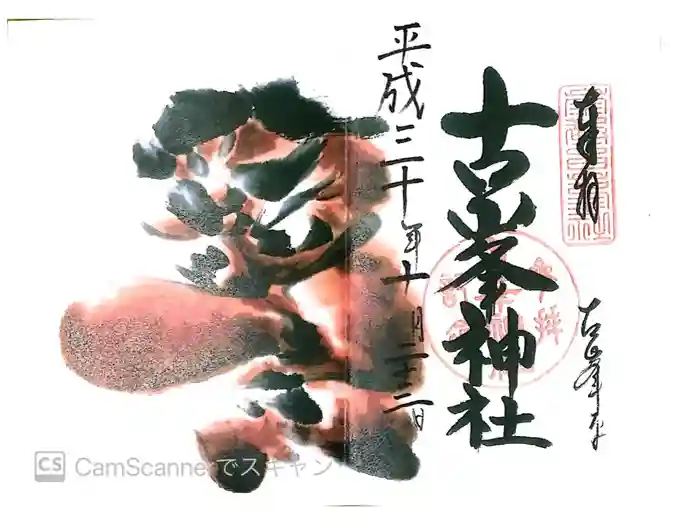 奉拝
古峯神社
平成三十年十月二十二日
CS CamScannerでスキャン